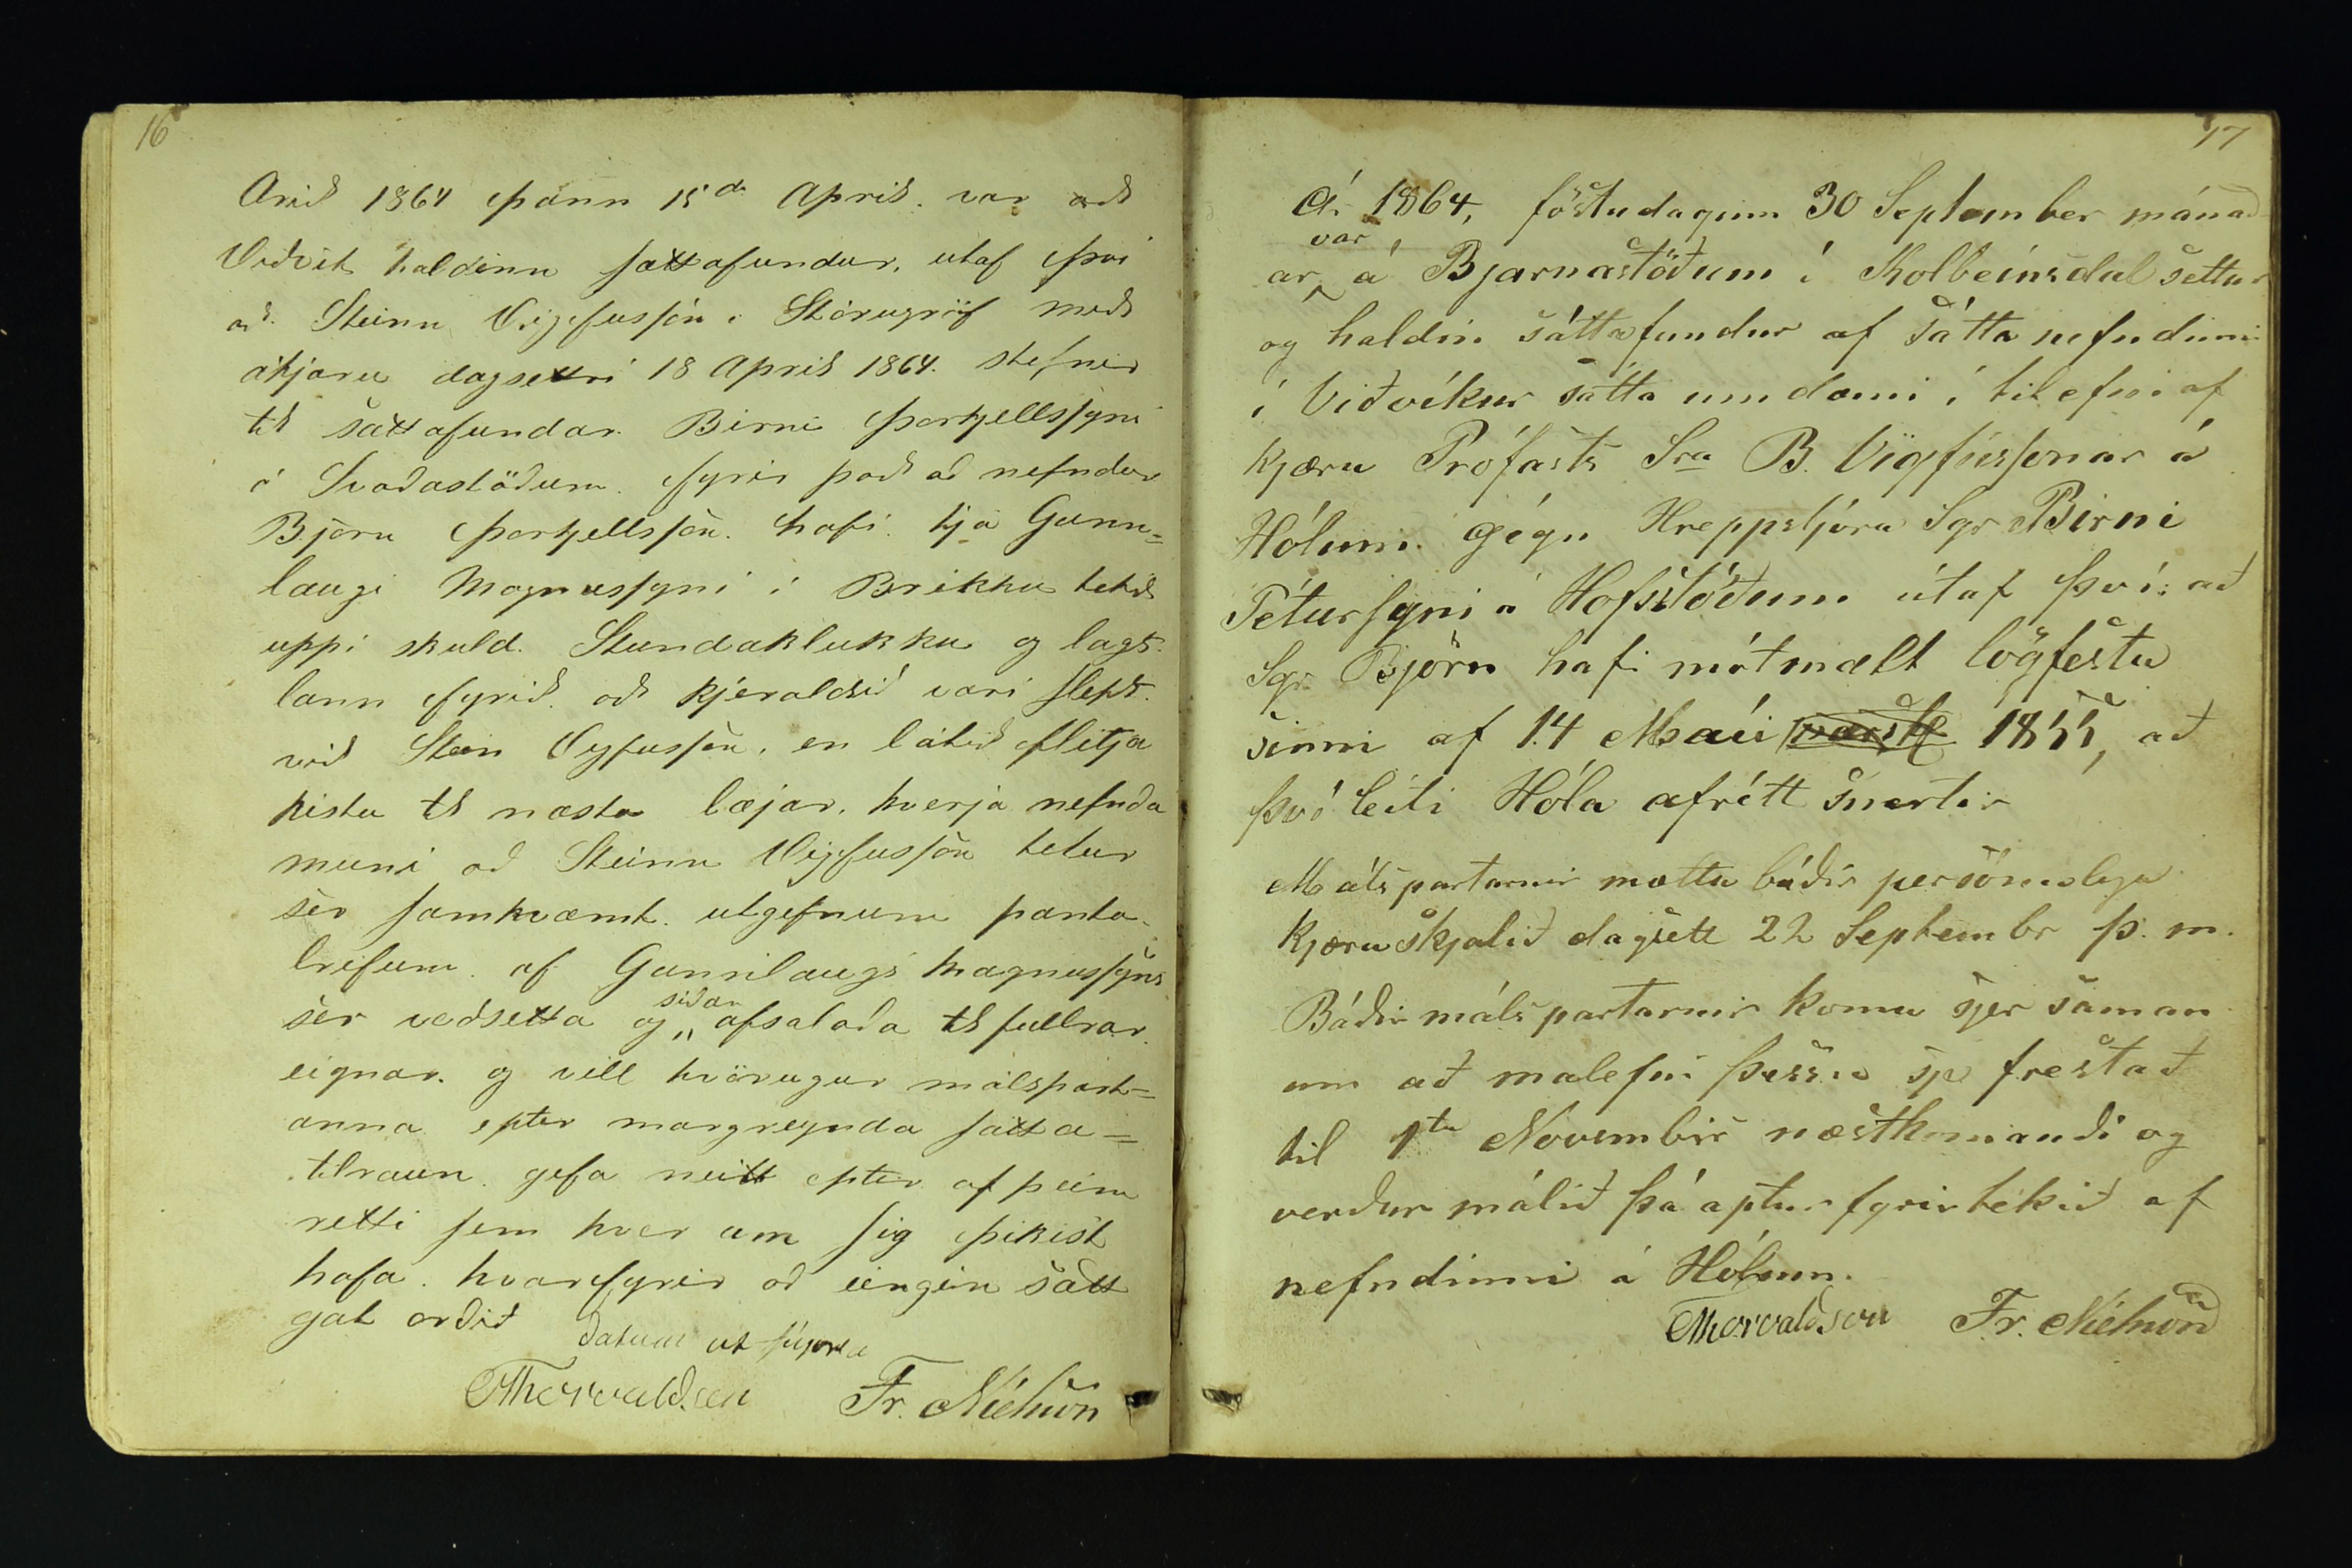 16
Arið 1864 þann 15da April. var að
Viðvik haldinn sattafundur, utaf því
að. Steinn Vigfusson i Stórugröf með
ákjæru dagsettri 18 April 1864. stefnir
til sattafundar Birni Þorkjellssyni
á Svaðastöðum fyrir það að nefndur
Björn Þorkjellsson. hafi. hjá Gunn=
laugi Magnussyni i Brekku tekið
uppi skuld. Stundaklukku og lagt.
lann fyrið að kjeraldið væri slept.
við Stein Vigfusson, en látið flitja
kistu til næsta bæjar, hverja nefnda
muni að Steinn Vigfusson telur
sèr samkvæmt. utgefnum panta-
brefum af Gunnlaugi Magnussyni
sèr veðsetta og síðar afsalaða til fullrar
eignar. og vill hvörugur málspart=
anna epter margreynda satta=
tilraun gefa neitt epter af þeim
retti sem hver um sig þikist
hafa. hvarfyrir að eingin sætt
gat orðið
datum ut supra
EThorvaldsen Fr. Níelsson
17
Ár 1864, föstudaginn 30 September mánað
ar var á Bjarnastöðum í Kolbeinsdal settur
og haldin sáttafundur af sátta nefndinni
í Viðvíkur sátta umdæmi í tilefni af
kjæru Prófasts Sra B. Vigfússonar á
Hólum gégn Hreppstjóra Sgr Birni
Péturssyni á Hofsstöðum útaf því: að
Sgr. Björn hafi mótmælt lögfestu
sinni af 14 Maíi 1855, að
því leiti Hóla afrétt snertir
Málspartarnir mættu báðir persónulega
kjæruskjalið dagsett 22 Septembr þ. m.
Báðir málspartarnir komu sjer saman
um að malefni þessu sje frestað
til 1ta Novembir næstkomandi og
verður málið þá aptur fyrirtekið af
nefndinni á Hólum.
EThorvaldsen Fr. Níelsson